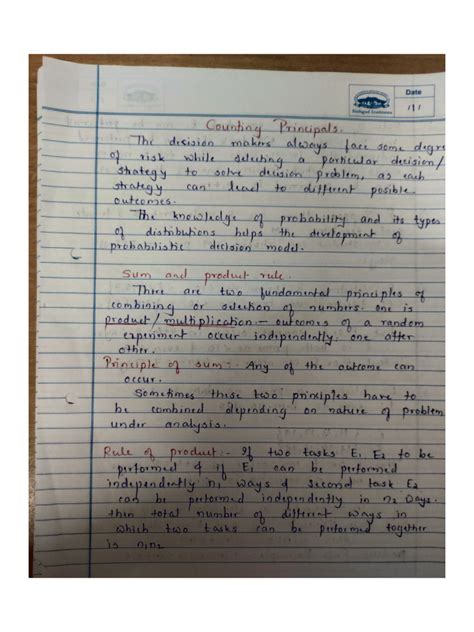 Date
1/1
Counting Principals.
The decision makers always face some degre
of risk while selecting a particular decision/
strategy to solve decision problem, as each
strategy can lead to different possible
outcomes.
The knowledge of probability and its types
of distributions helps the development of
probabilistic decision model.
Sum and product rule.
There are two fundamental principles of
combining or selection of numbers one is
product/multiplication - outcomes of a random
experiment occur independently one after
other.
Principle of sum :- Any of the outcome can
occur.
Sometimes these two principles have to
be combined depending on nature of problem
under analysis.
Rule of product :- If two tasks E1 E2 to be
performed & if E1 can be performed
independently n1 ways & second task E2
can be performed independently in n2 Ways.
then total number of different ways in
which two tasks can be performed together
is n1n2